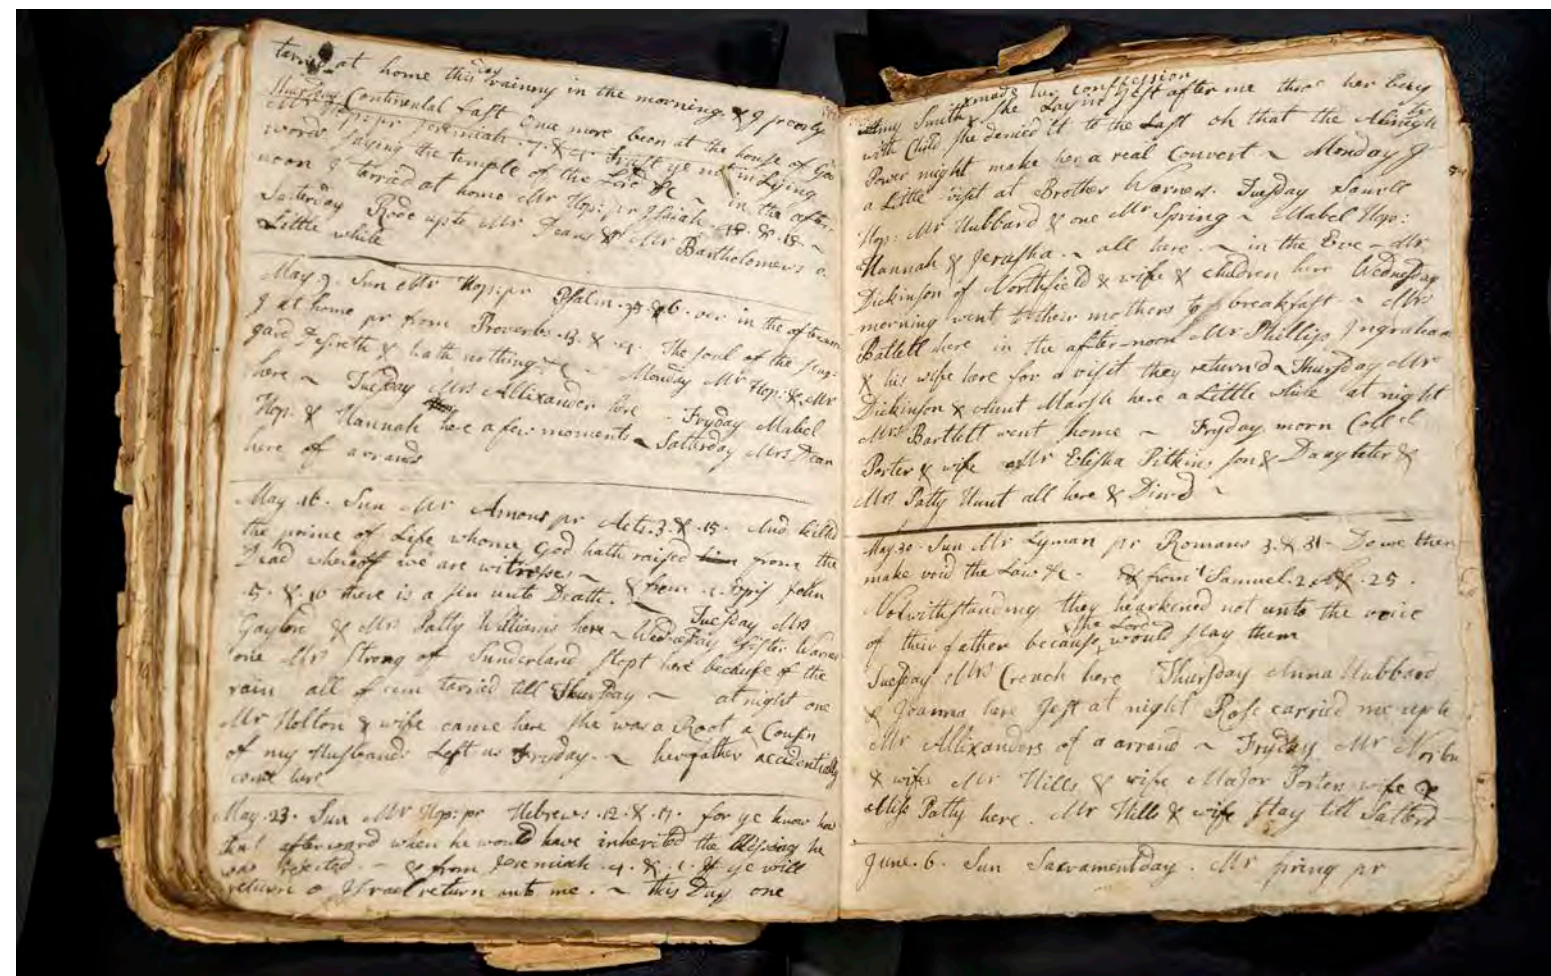 at home this day rainny in the morning & I poorly
Thursday Continental fast Once more been at the house of God
Mr Hop: pr Jeremiah .7. & .4. Trust ye not in Lying
words saying the temple of the Lord &c ~ in the after
noon I tarried at home Mr Hop: pr Isaiah
Saterday Rode up to Mr Deans & Mr Bartholomews a
Little while
May 9. Sun Mr Hop: pr Psalm in the afternoon
I at home pr from Proverbs .13. & .4. The soul of the slug-
gard Desireth & hath nothing &c ~ Monday Mr Hop: & Mr
here ~ Tuesday Mrs Allixander here - Fryday Mabel
Hop: & Hannah here a few moments ~ Satturday Mrs Dean
here of arrands
May 16. Sun Mr Amous pr Acts. 3. & .15. And killed
the prince of Life whome God hath raised from the
Dead whereoff we are witneses ~
there is a sin unto Death. ~ Tuesday Mrs
Gaylord & Mrs Patty Williams here ~ Wednesday Sister Warner
one Mrs Strong of Sunderland stopt here because of the
rain all of em tarried till Thursday ~ at night one
Mr Holton & wife came here she was a Root a Cousin
of my Husbands Left us Fryday. ~ her father accidentially
came here
May. 23. Sun Mr Hop: pr Hebrews .12. & .17. for ye know how
that afterward when he would have inherited the Blessing he
was rejected - & from Jeremiah .4. & .1. If ye will
return o Israel return unto me. ~ this Day one
Amy Smith made her confession she Lay in Jest after me tho her being
with Child she denied it to the Last oh that the Almighty
Power might make her a real Convert ~ Monday I
a Little visit at Brother Warners. Tuesday
Hop: Mr Hubbard & one Mr Spring ~ Mabel Hop:
Hannah & Jerusha ~ all here. ~ in the Eve - Mr
Dickinson of Northfield & wife & children here Wednesday
morning went to their mothers to breakfast. ~ Mrs
here in the after-noon Mr Phillip Ingraham
& his wife here for a visit they returned ~ Thursday Mr
Dickinson & Aunt Marsh here a Little while at night
Mrs Bartlett went home ~ Fryday morn Coll
Porter & wife Mr Elisha Pitkins son & Daughter &
Mrs Patty Hunt all here & Dined ~
May 30 - Sun Mr Lyman pr Romans 3. & 31 - Do we then
make void the Law &c - & from 1 Samuel . 2 & . 25 .
Notwithstanding they hearkened not unto the voice
of their father because the Lord would slay them
Tuesday Mrs Crouch here Thursday Anna Hubbard
& Joanna here Jest at night Rose carried me up to
Mr Allixanders of a arrand ~ Fryday Mr
& wife Mr Hills & wife Major Porters wife &
Miss Patty here. Mr Hills & wife stay till Satterd
June. 6. Sun Sacramentday. Mr spring pr